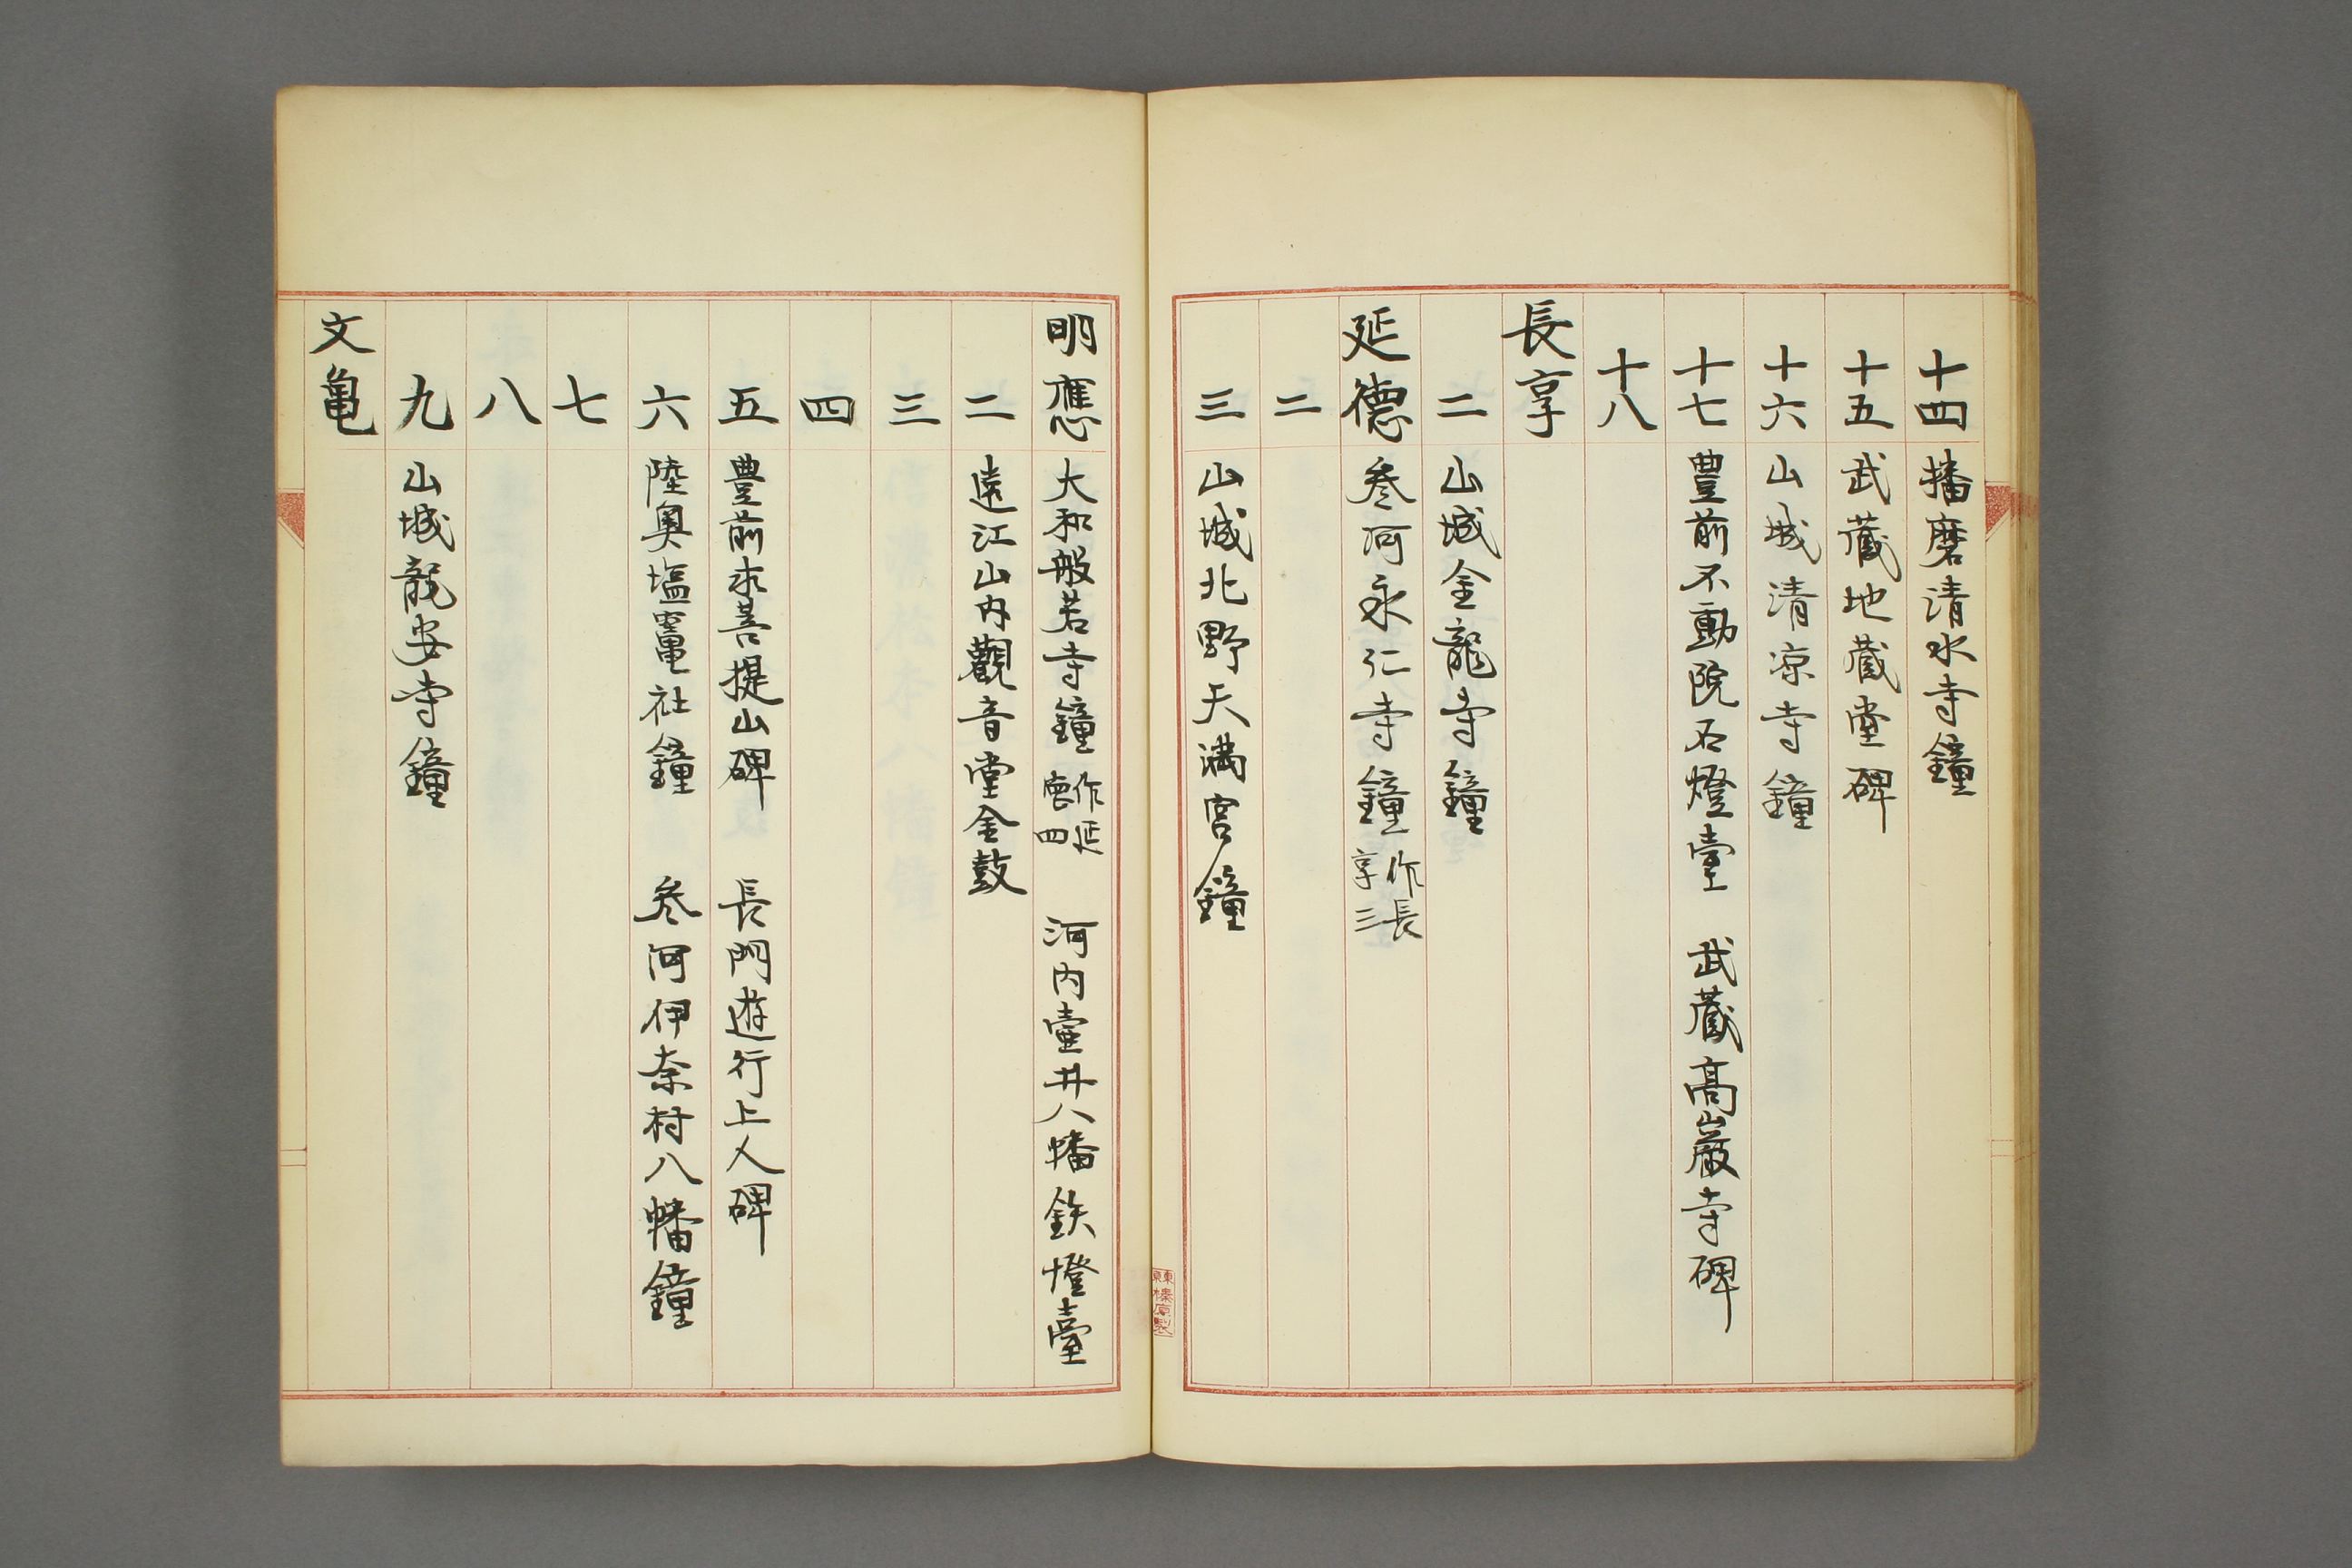 十四 播磨清水寺鐘
十五 武藏地藏堂碑
十六 山城清凉寺鐘
十七 豊前不動院石燈臺 武藏高巖寺碑
十八
長享
二 山城金龍寺鐘
延德 叄河永仁寺鐘 作長享三
二
三 山城北野天滿宮鐘
東京榛原製
明應 大和般若寺鐘 作延德四 河内壷井八幡鉄燈臺
二 遠江山内觀音堂金鼓
三
四
五 豊前求菩提山碑 長門遊行上人碑
六 陸奥塩竈社鐘 叄河伊奈村八幡鐘
七
八
九 山城龍安寺鐘
文亀